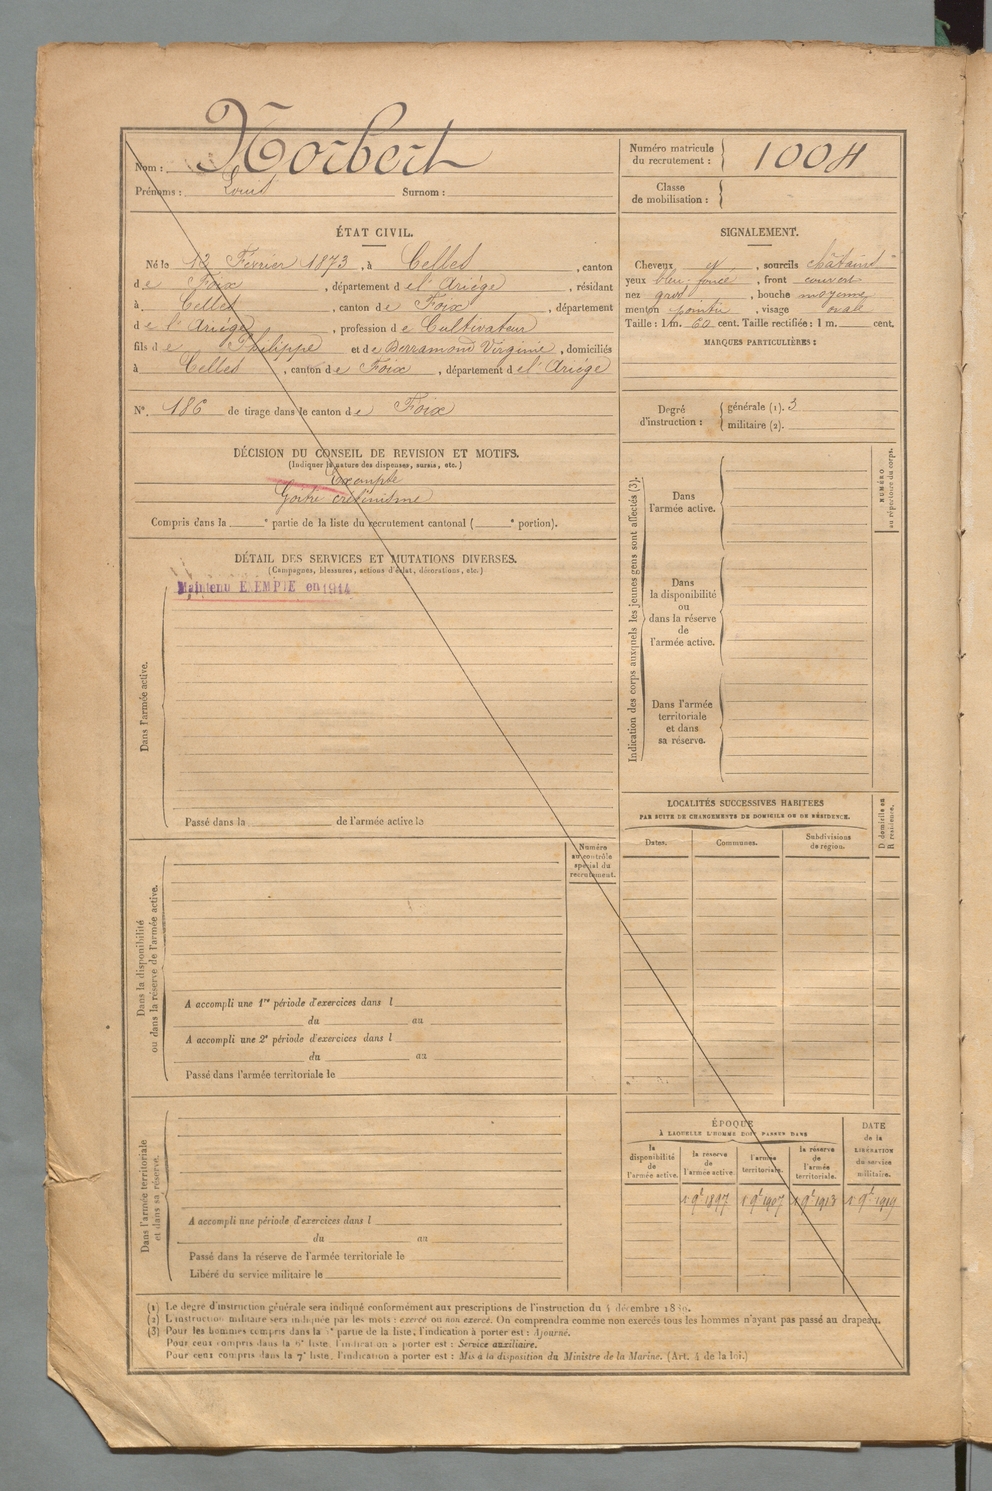 Nom : Norbert
Prénoms : Louis Surnom :
Numéro matricule du recrutement : 1004
Classe de mobilisation :
ÉTAT CIVIL.
Né le 12 Février 1873, à Celles, canton
de Foix, département de l'Ariége, résidant
à Celles, canton de Foix, département
de l'Ariége, profession de Cultivateur
fils de Philippe et de Berramond Virginie, domiciliés
à Celles, canton de Foix, département de l'Ariége
N° 186 de tirage dans le canton de Foix
SIGNALEMENT.
Cheveux et, sourcils châtains
yeux bleu foncé, front couvert
nez gros, bouche moyenne
menton pointu, visage ovale
Taille : 1 m. 60 cent. Taille rectifiée : 1 m. cent.
MARQUES PARTICULIÈRES :
Degré d'instruction :
générale (1). 3
militaire (2).
DÉCISION DU CONSEIL DE REVISION ET MOTIFS.
(Indiquer la nature des dispenses, sursis, etc.)
Exempté
Goitre crétinisme
Compris dans la e partie de la liste du recrutement cantonal ( e portion).
DÉTAIL DES SERVICES ET MUTATIONS DIVERSES.
(Campagnes, blessures, actions d'éclat, décorations, etc.)
Maintenu EXEMPTE en 1914
Dans l'armée active.
Passé dans la de l'armée active le
Numéro au contrôle spécial du recrutement.
Dans la disponibilité ou dans la réserve de l'armée active.
A accompli une 1re période d'exercices dans l
du au
A accompli une 2e période d'exercices dans l
du au
Passé dans l'armée territoriale le
Dans l'armée territoriale et dans sa réserve.
A accompli une période d'exercices dans l
du au
Passé dans la réserve de l'armée territoriale le
Libéré du service militaire le
Indication des corps auxquels les jeunes gens sont affectés (3).
Dans l'armée active.
Dans la disponibilité ou dans la réserve de l'armée active.
Dans l'armée territoriale et dans sa réserve.
NUMÉRO au répertoire du corps.
LOCALITÉS SUCCESSIVES HABITÉES
PAR SUITE DE CHANGEMENTS DE DOMICILE OU DE RÉSIDENCE.
Dates. Communes. Subdivisions de région. D domicile ou R résidence.
ÉPOQUE
À LAQUELLE L'HOMME DOIT PASSER DANS
la disponibilité de l'armée active.
la réserve de l'armée active.
l'armée territoriale.
la réserve de l'armée territoriale.
DATE de la LIBÉRATION du service militaire.
1 9bre 1897 1 9bre 1907 1 9bre 1913 1 9bre 1919
(1) Le degré d'instruction générale sera indiqué conformément aux prescriptions de l'instruction du 4 décembre 1889.
(2) L'instruction militaire sera indiquée par les mots : exercé ou non exercé. On comprendra comme non exercés tous les hommes n'ayant pas passé au drapeau.
(3) Pour les hommes compris dans la partie de la liste, l'indication à porter est : Ajourné.
Pour ceux compris dans la 6e liste, l'indication à porter est : Service auxiliaire.
Pour ceux compris dans la 7e liste, l'indication à porter est : Mis à la disposition du Ministre de la Marine. (Art. 4 de la loi.)